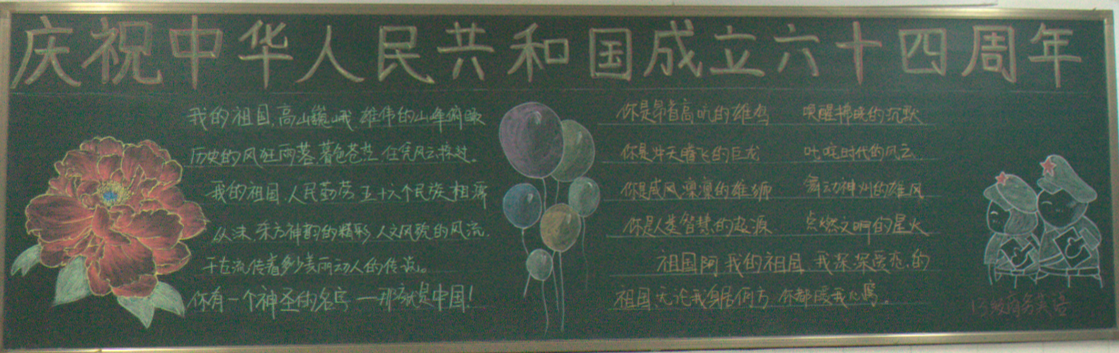 庆祝中华人民共和国成立六十四周年
我的祖国,高山巍峨 雄伟的山峰俯瞰
历史的风狂雨暮 暮色苍茫 任凭风云掠过。
我的祖国 人民勤劳 五十六个民族 相濡
以沫 东方神韵的精彩 人文风貌的风流,
千古流传着多少美丽动人的传说。
你有一个神圣的名字 — 那就是中国!
你是昂首高吭的雄鸡 唤醒拂晓的沉默
你是冲天腾飞的巨龙 叱咤时代的风云
你是威风凛凛的雄狮 舞动神州的雄风
你是人类智慧的起源 点燃文明的星火
祖国阿 我的祖国 我深深爱恋的
祖国 无论我身居何方 你都暖我心窝。
13级商务英语